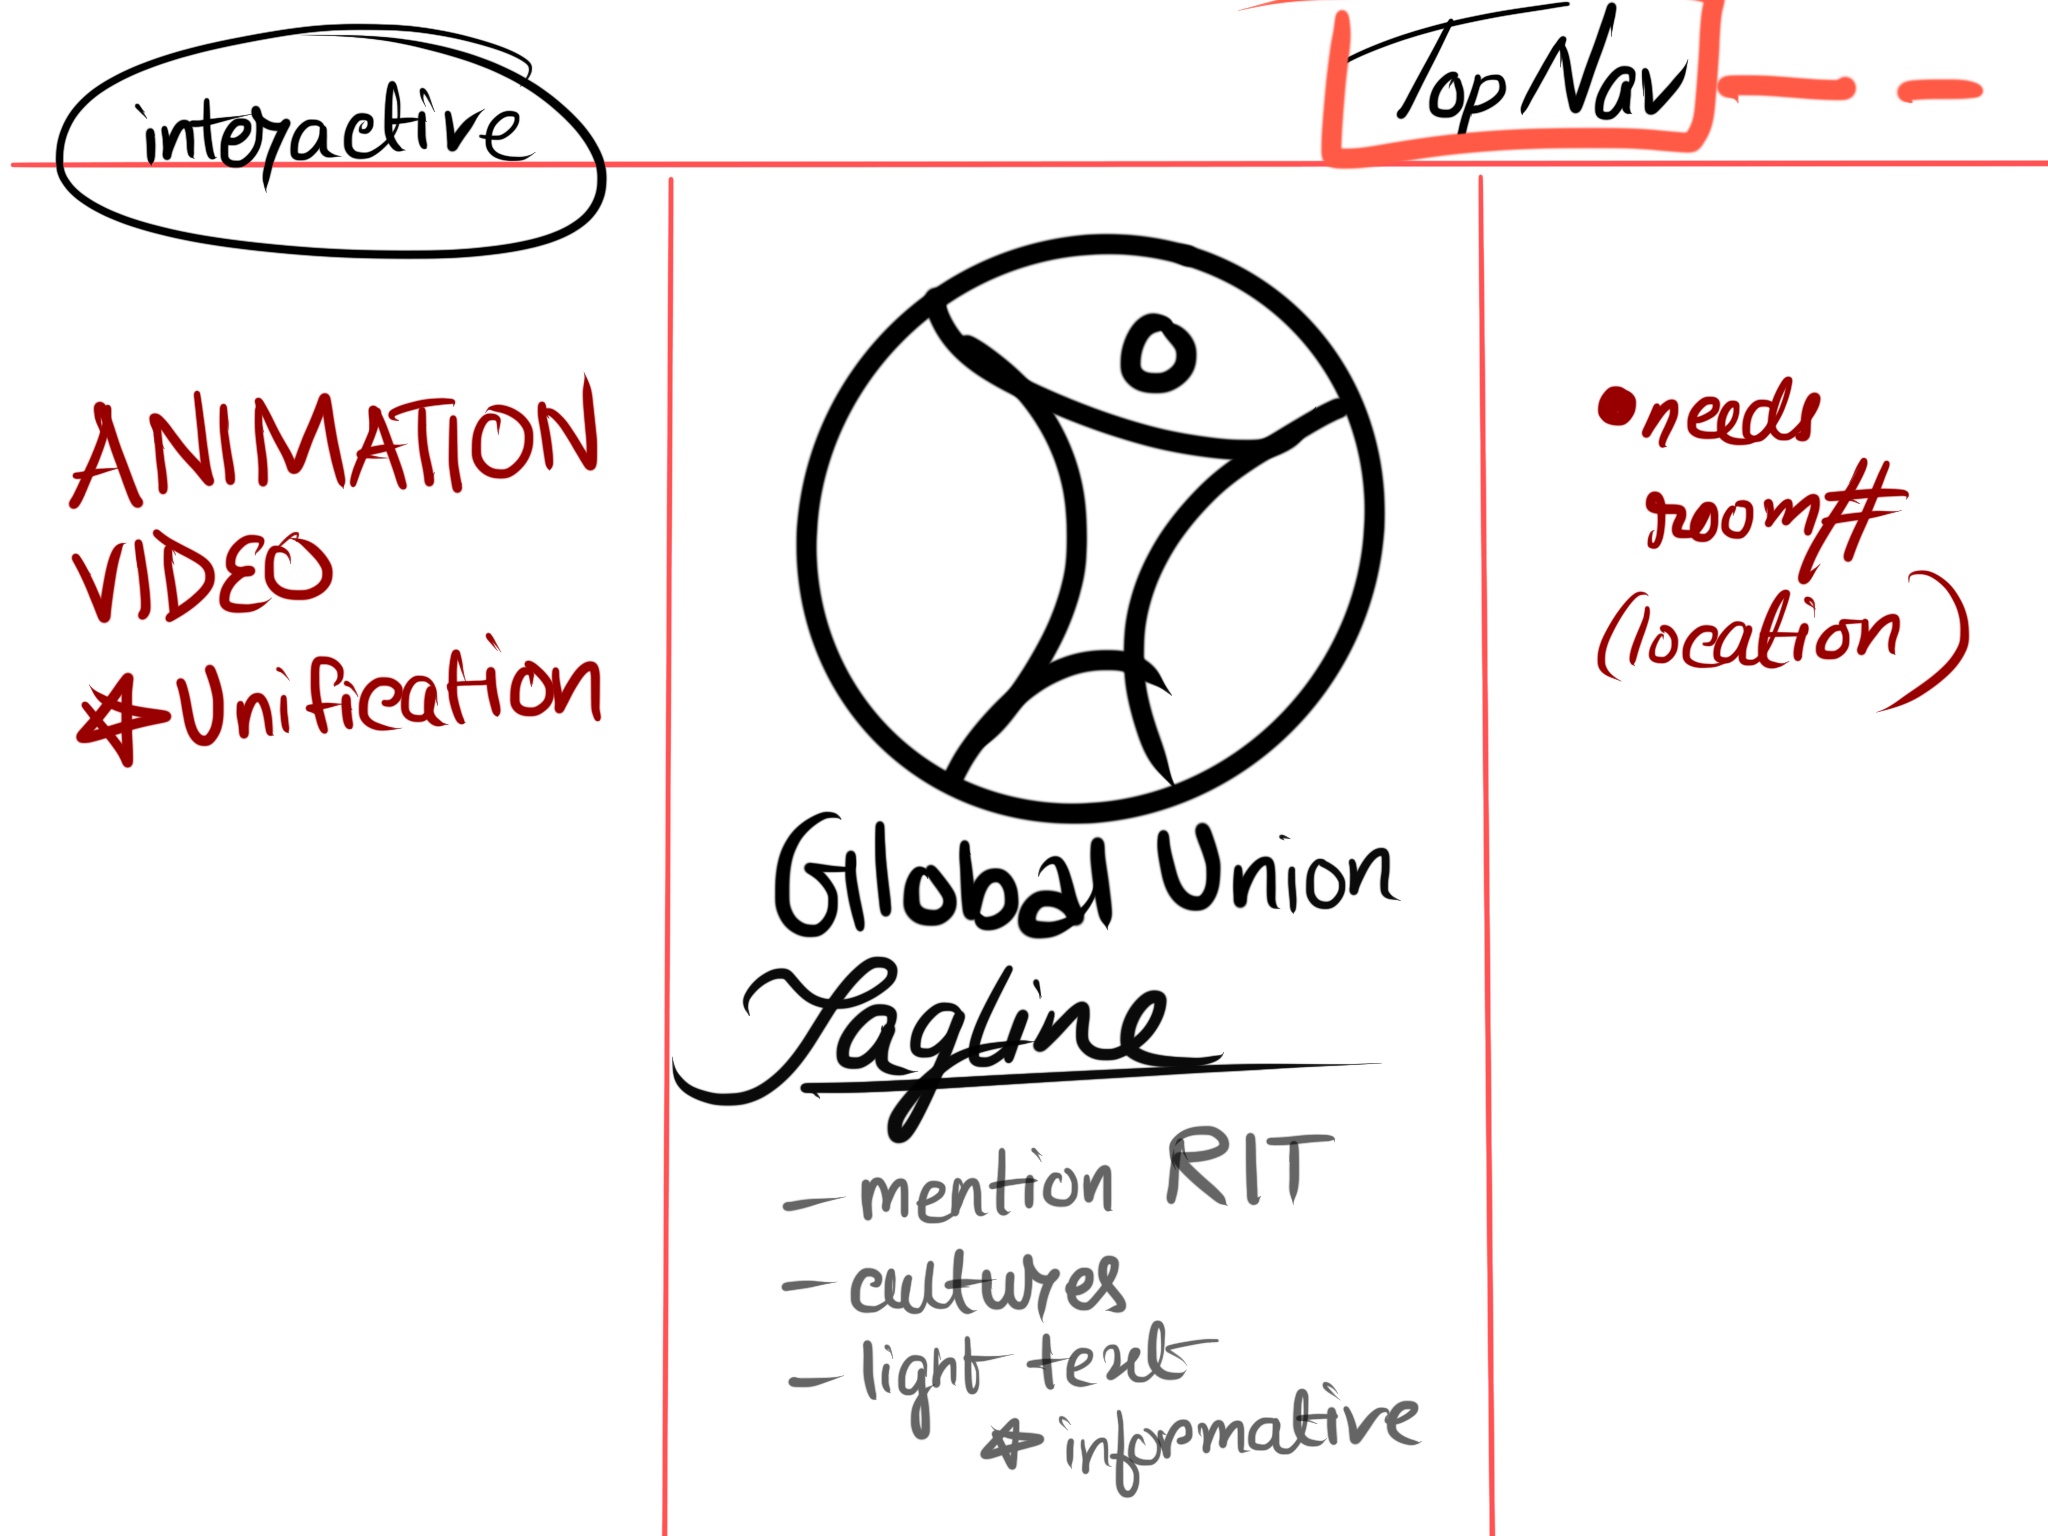 interactive
Top Nav
ANIMATION
VIDEO
Unification
Global Union
Tagline
- mention RIT
- cultures
- light text
informative
• needs
room#
(location)